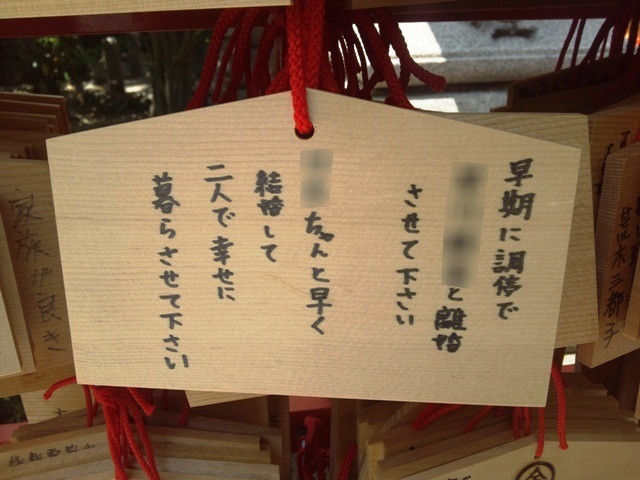 早期に調停で
と離婚
させて下さい
ちゃんと早く
結婚して
二人で幸せに
暮らさせて下さい
家族が良き